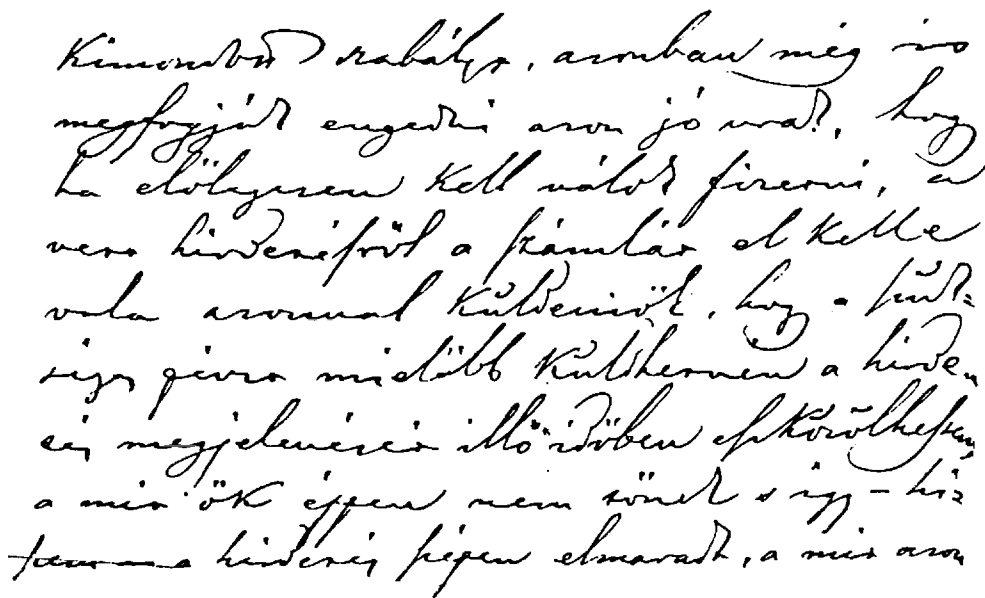 Kimondott szabálya, azonban még is
megfogják engedni azon jó urak, hogy
ha előlegesen kell válok fizetni, a
vett hirdetésről a számlát el kelle
vala azonnal küldeniök, hogy a szük-
séges pénzt mielőbb küldhetném a hirde-
tés megjelenését illő időben eszközölhessem,
a mit ők éppen nem tőnek s így – hi-
a hirdetés szépen elmaradt, a mit azon